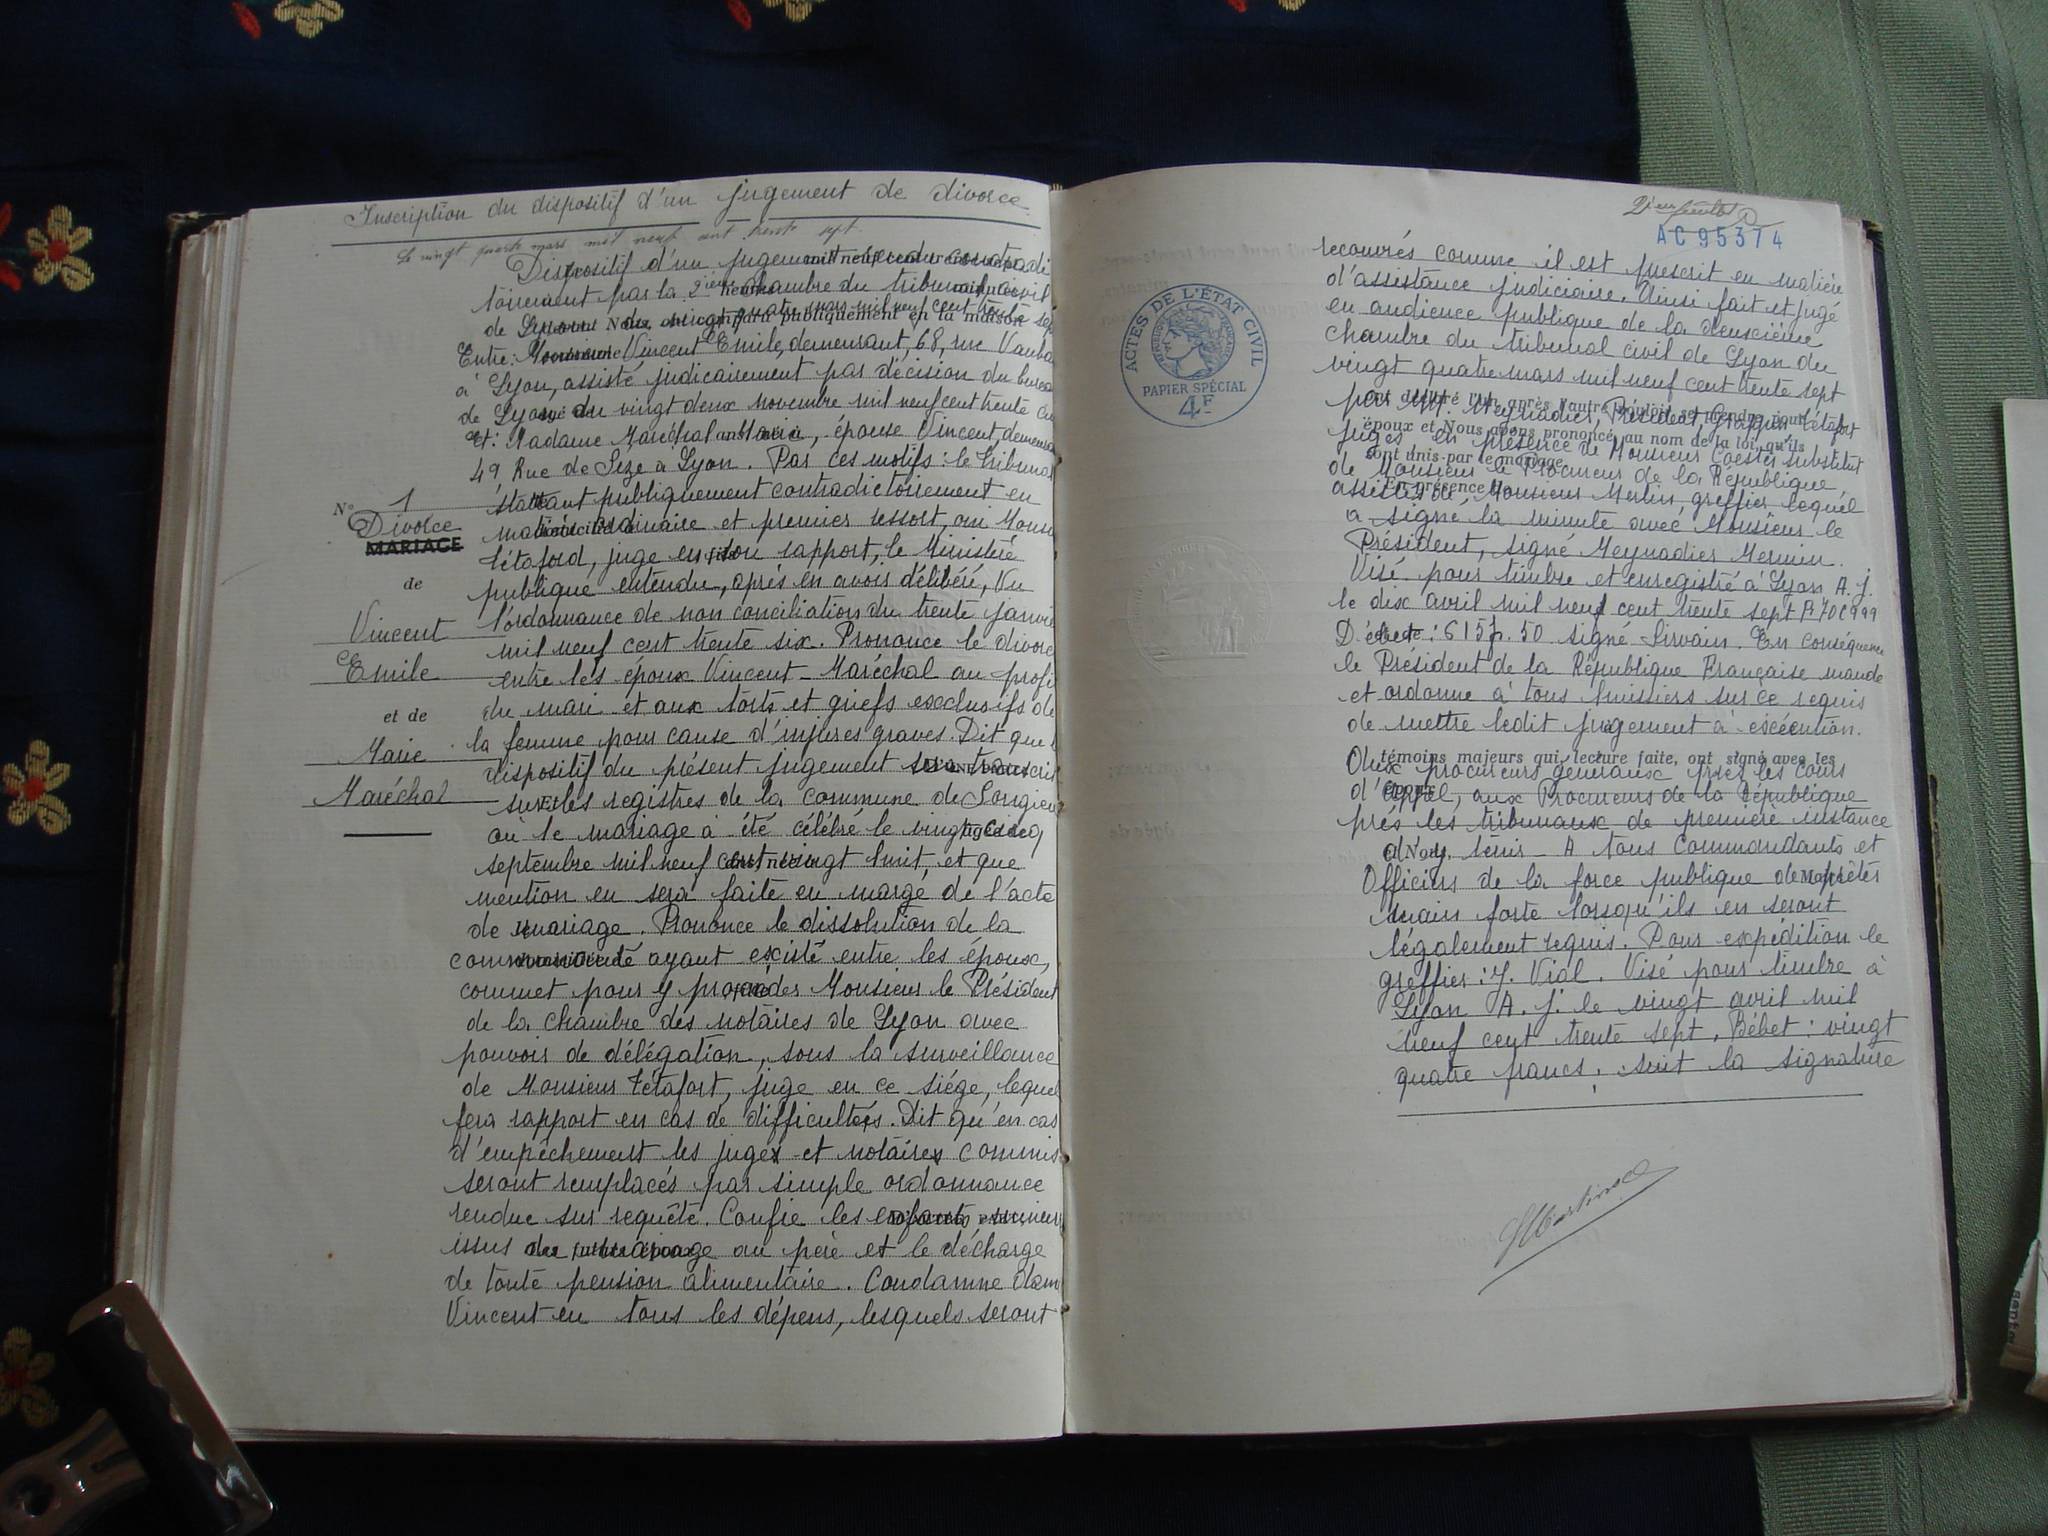 Inscription du dispositif d'un jugement de divorce
Le vingt quatre mars mil neuf cent trente sept
Dispositif d'un jugement rendu contradi
toirement par la 2ième chambre du tribunal civil
de Lyon du vingt quatre mars mil neuf cent trente sep
Entre: Monsieur Vincent Emile, demeurant, 68, rue Vauba
à Lyon, assisté judicairement par décision du burea
de Lyon du vingt deux novembre mil neuf cent trente
Et: Madame Maréchal Maria, épouse Vincent, demeura
49 Rue de Seze à Lyon. Par ces motifs: le tribunal
statuant publiquement contradictoirement en
matière ordinaire et premier ressort, oui Monsi
Tétaford, juge en son rapport, le Ministère
publique entendu, après en avoir délibéré, Vu
l'ordonnance de non conciliation du trente janvie
mil neuf cent trente six. Prononce le divorce
entre les époux Vincent - Maréchal au profi
du mari et aux torts et griefs exclusifs de
la femme pour cause d'injures graves. Dit que l
dispositif du présent jugement sera transcrit
sur les registres de la commune de Songieu
où le mariage a été célébré le vingt
septembre mil neuf cent vingt huit, et que
mention en sera faite en marge de l'acte
de mariage. Prononce le dissolution de la
communauté ayant existé entre les époux,
commet pour y procéder Monsieur le Président
de la chambre des notaires de Lyon avec
pouvoir de délégation, sous la surveillance
de Monsieur Tétafort, juge en ce siège, lequel
fera rapport en cas de difficultés. Dit qu'en cas
d'empêchement les juges et notaires commis
seront remplacés par simple ordonnance
rendue sur requête. Confie les enfants mineurs
issus du mariage au père et le décharge
de toute pension alimentaire. Condamne dam
Vincent en tous les dépens, lesquels seront
N° 1
Divorce
MARIAGE
de
Vincent
Emile
et de
Marie
Maréchal
2ième feuillet
AC 95374
ACTES DE L'ÉTAT CIVIL
PAPIER SPÉCIAL
4F
recouvrés comme il est prescrit en matière
d'assistance judiciaire. Ainsi fait et jugé
en audience publique de la deuxième
chambre du tribunal civil de Lyon du
vingt quatre mars mil neuf cent trente sept
par MM. Meynadier, Président, Grappin, Tétafort
ont déclaré l'un après l'autre vouloir se prendre pour
époux et Nous avons prononcé, au nom de la loi, qu'ils
juges en présence de Monsieur Coester substitut
sont unis par le mariage.
de Monsieur le Procureur de la République
En présence de
assistés de Monsieur Merlin, greffier, lequel
a signé la minute avec Monsieur le
Président, signé Meynadier Mermin.
Visé pour timbre et enregistré à Lyon A. J.
le dix avril mil neuf cent trente sept F: 70 C 999
Débet: 615f. 50 signé Sirvain. En conséquence
le Président de la République Française mande
et ordonne à tous huissiers sur ce requis
de mettre ledit jugement à exécution.
témoins majeurs qui, lecture faite, ont signé avec les
Aux procureurs généraux près les cours
d'appel, aux Procureurs de la République
près les tribunaux de première instance
d'y tenir - A tous Commandants et
Officiers de la force publique de prêter
main forte lorsqu'ils en seront
légalement requis. Pour expédition le
greffier: J. Vial. Visé pour timbre à
Lyon A. J. le vingt avril mil
neuf cent trente sept. Débet: vingt
quatre francs, suit la signature